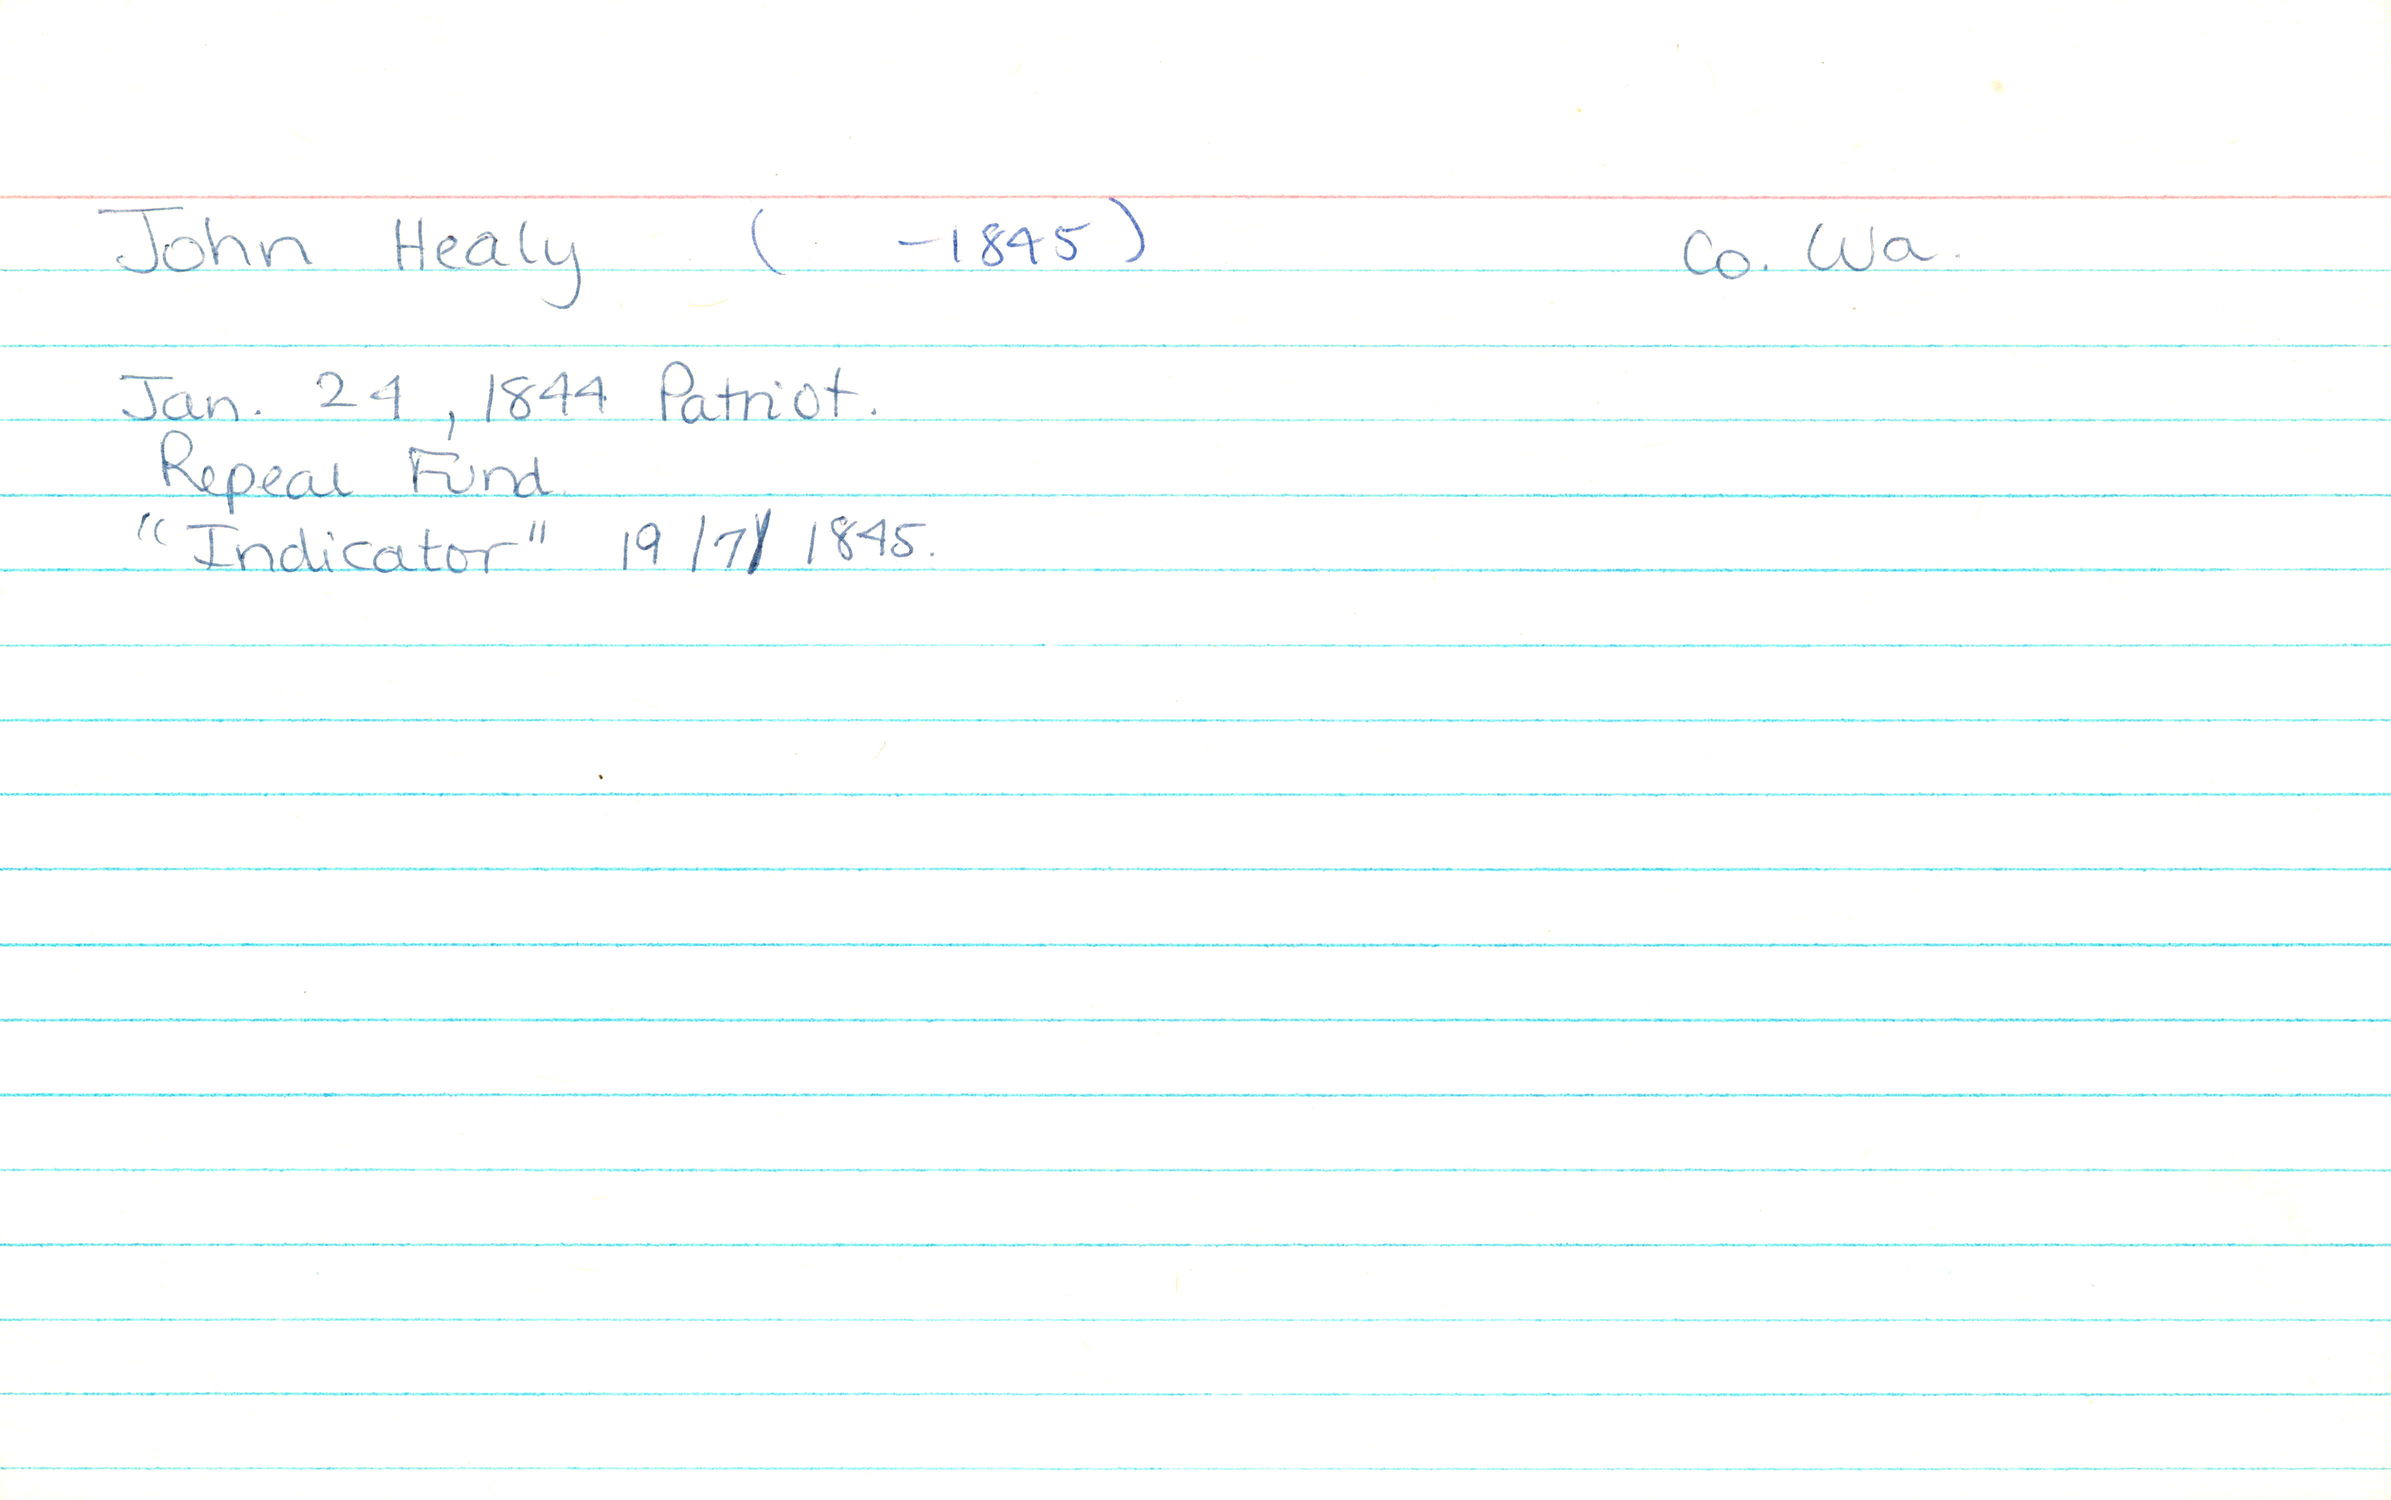 John Healy ( -1845) Co. Wa.
Jan. 24, 1844 Patriot.
Repeal Fund.
"Indicator" 19/7/1845.